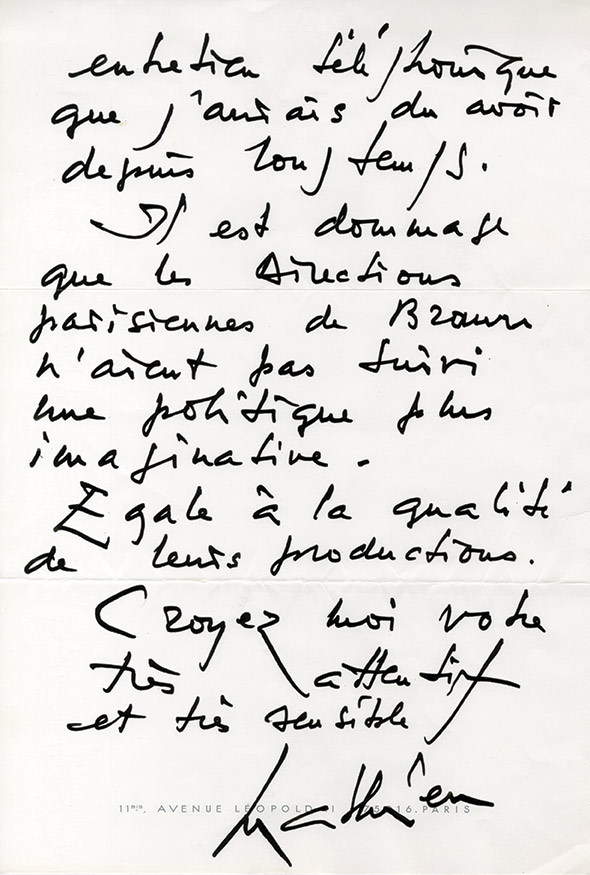 entretien téléphonique
que j'aurais du avoir
depuis longtemps.
Il est dommage
que les directions
parisiennes de Braun
n'aient pas suivi
une politique plus
imaginative.
Egale à la qualité
de leurs productions.
Croyez moi votre
très attentif
et très sensible
Mathieu
11BIS, AVENUE LÉOPOLD II, 75016.PARIS